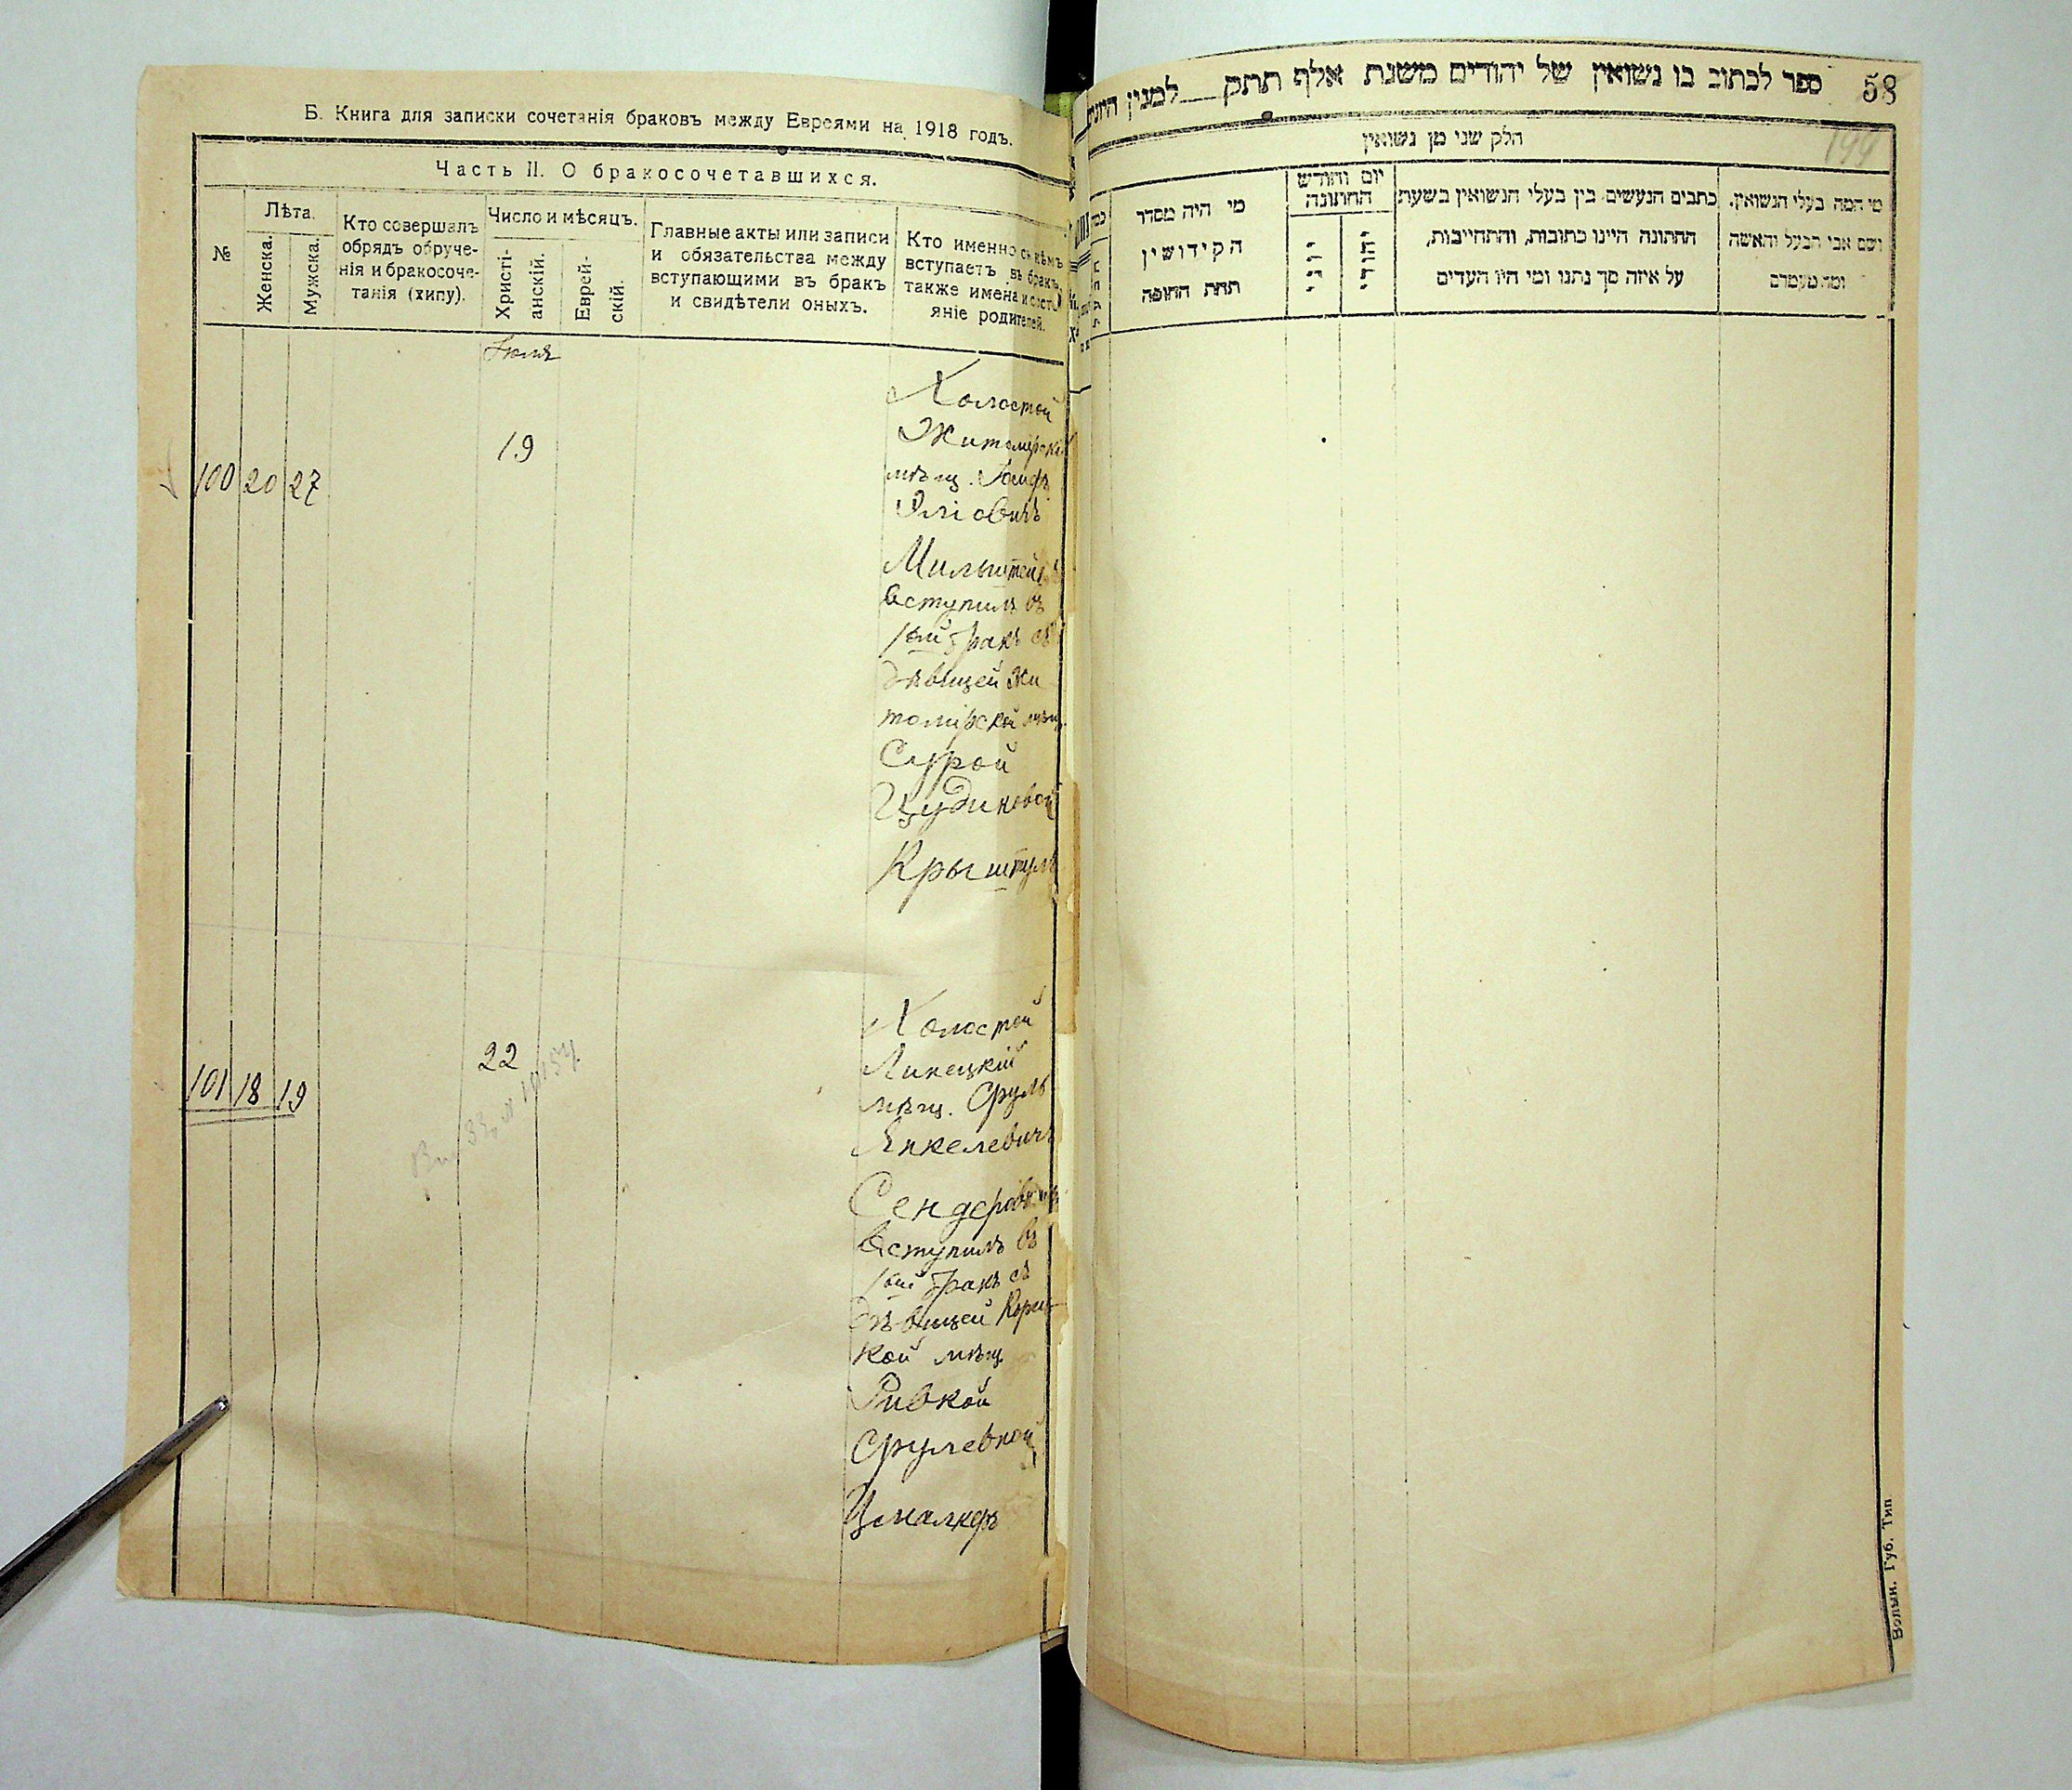 Б. Книга для записки сочетанія браковъ между Евреями на 1918 годъ.
Часть II. О бракосочетавшихся.
№
Лѣта.
Женска.
Мужска.
Кто совершалъ
обрядъ обруче-
нія и бракосоче-
танія (хипу).
Число и мѣсяцъ.
Христі-
анскій.
Еврей-
скій.
Главные акты или записи
и обязательства между
вступающими въ бракъ
и свидѣтели оныхъ.
Кто именно съ кѣмъ
вступаетъ въ бракъ,
также имена и состо-
яніе родителей.
Іюля
100 20 27
19
Холостой
Житомірскій
мѣщ. Іосифъ
Эліовичъ
Мильштейнъ
вступилъ въ
1ый бракъ съ
дѣвицей Жи
томірской мѣщ.
Сурой
Крыштулъ
101 18 19
22
Холостой
Липецкій
мѣщ. Сруль
Янкелевичъ
Сендеровичъ
вступилъ въ
1ый бракъ съ
дѣвицей Корец
кой мѣщ.
Ривкой
Срулевной
58
199
ספר לכתוב בו נשואין של יהודים משנת אלף תתק למנין היוני
חלק שני מן נשואין
מי המה בעלי הנשואין,
ושם אבי הבעל והאשה
ומה מעמדם
כתבים הנעשים בין בעלי הנשואין בשעת
החתונה היינו כתובות, והתחייבות,
על איזה סך נתנו ומי היו העדים
יום וחודש
החתונה
יהודי
יוני
מי היה מסדר
הקידושין
תחת החופה
Волын. Губ. Тип